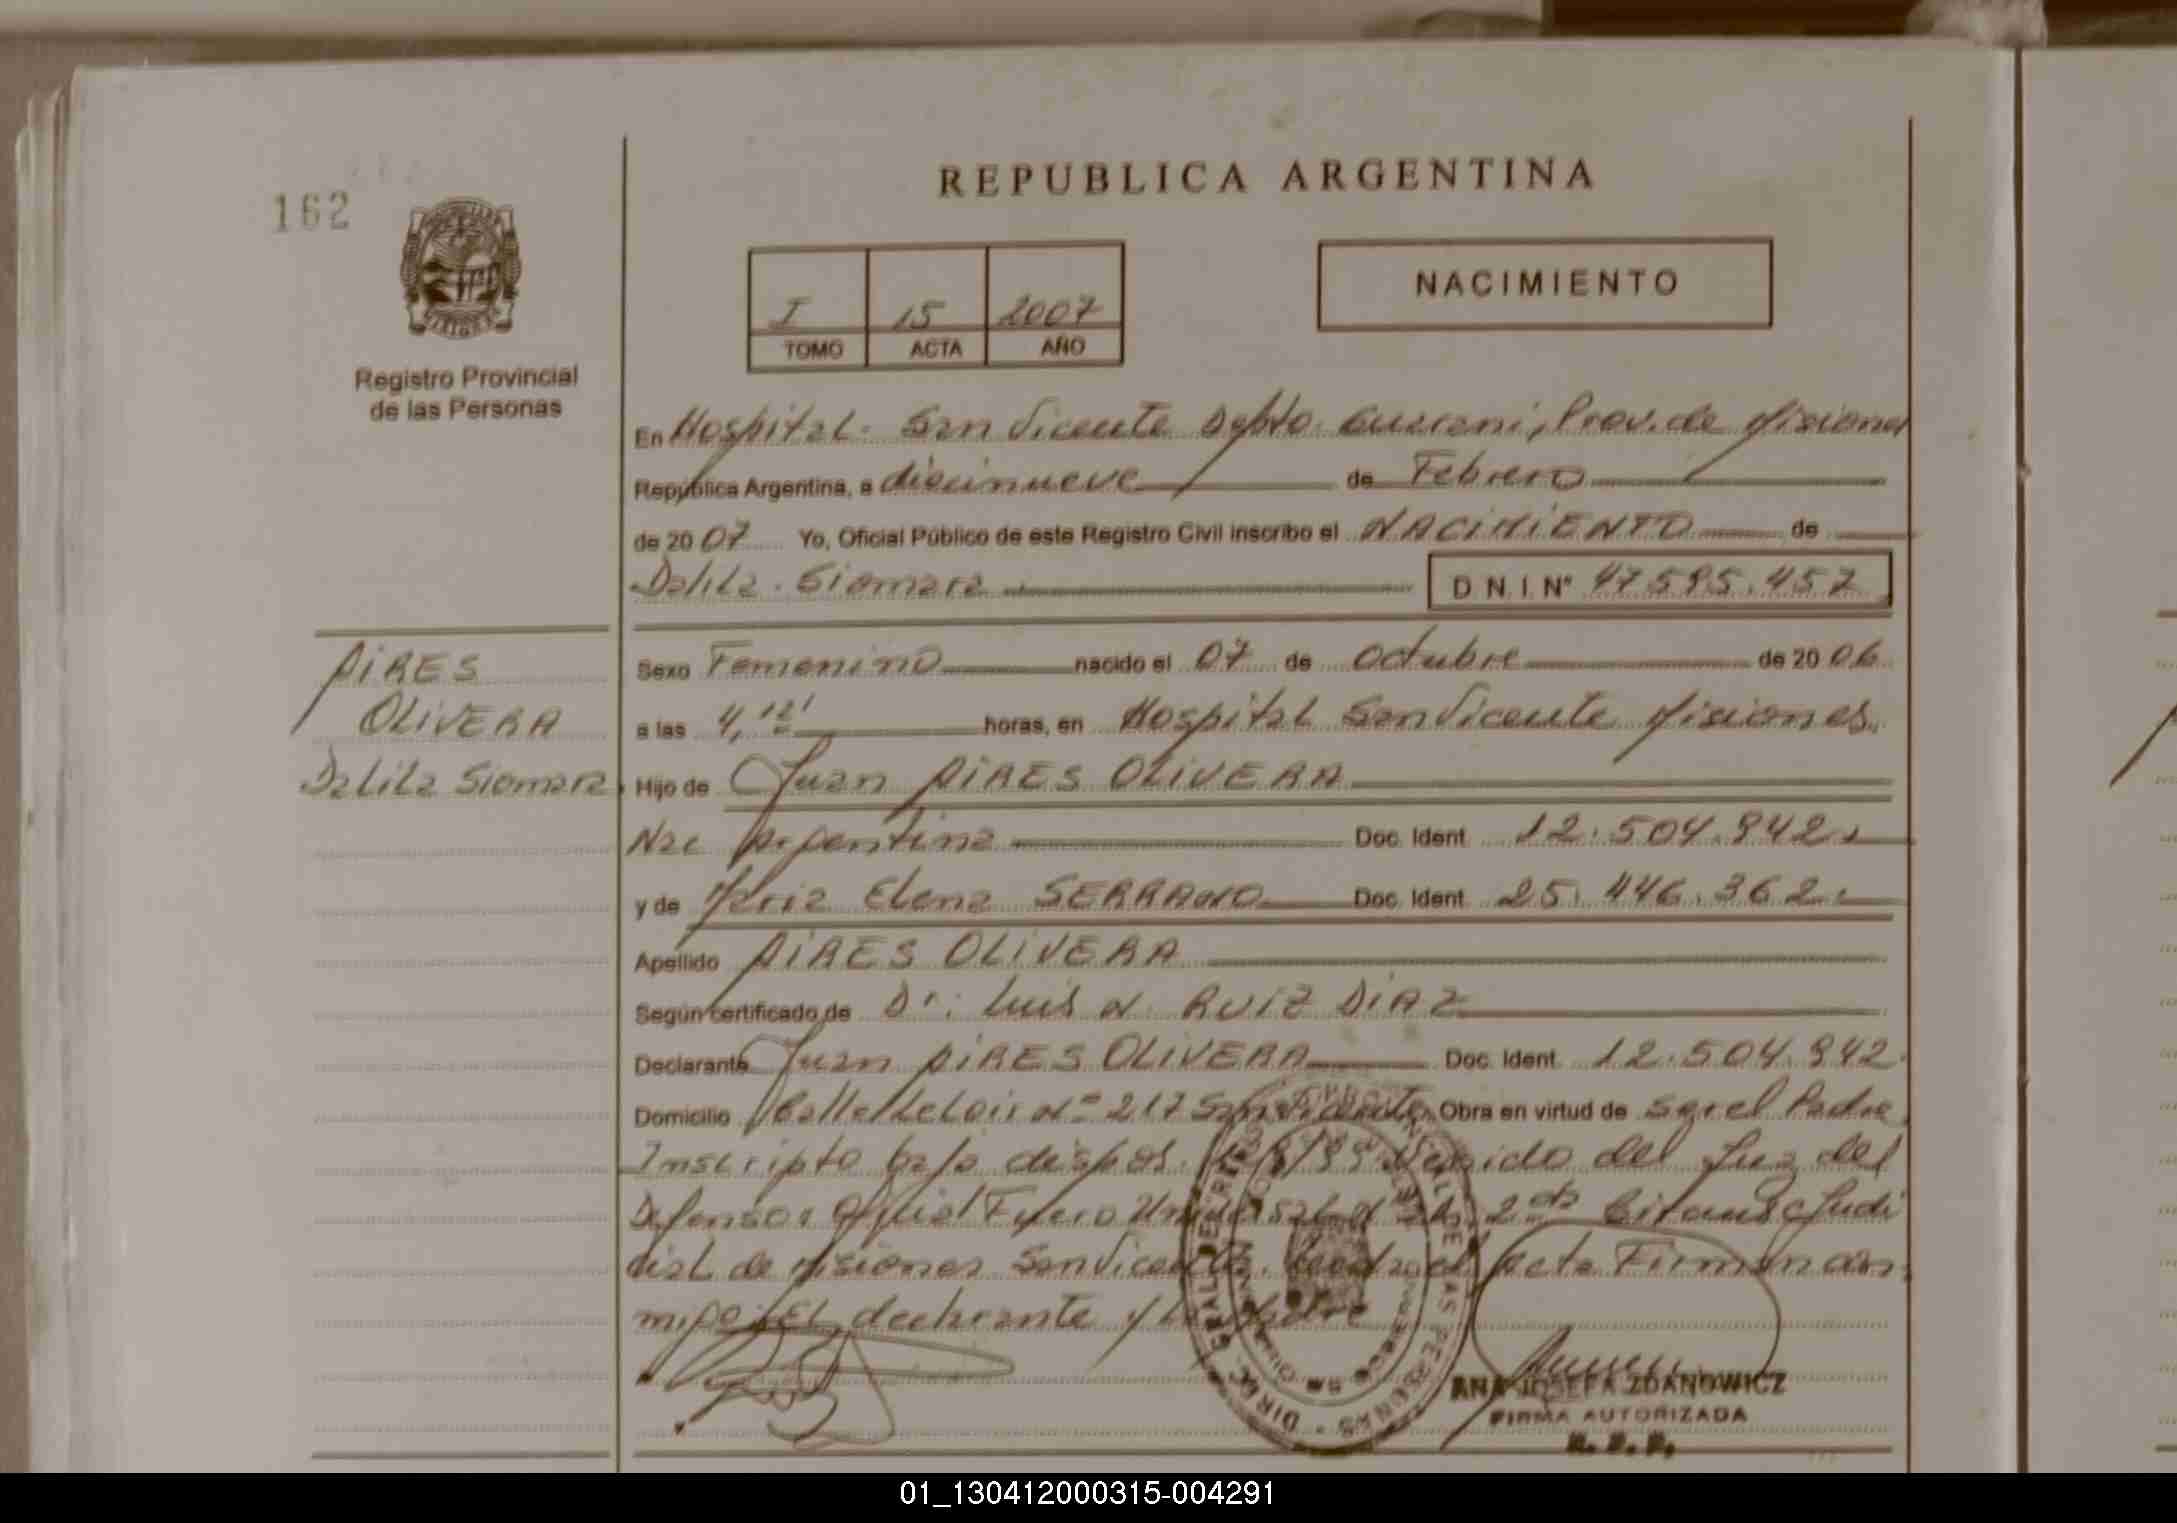 162
REPUBLICA ARGENTINA
I 15 2007
TOMO ACTA AÑO
NACIMIENTO
Registro Provincial
de las Personas
En Hospital San Vicente Dpto Guarani, Prov. de Misiones
República Argentina, a diecinueve de Febrero
de 2007 Yo, Oficial Público de este Registro Civil inscribo el NACIMIENTO de
Dalila Siomara D N. I. Nº 47.595.457
PIRES
OLIVERA
Dalila Siomara
Sexo Femenino nacido el 07 de octubre de 2006
a las 4,12' horas, en Hospital San Vicente Misiones.
Hijo de Juan PIRES OLIVERA
Nac Argentina Doc. Ident. 12.504.942
y de Maria Elena SERRANO Doc. Ident. 25.446.362
Apellido PIRES OLIVERA
Según certificado de Dr. Luis N. RUIZ DIAZ
Declarante Juan PIRES OLIVERA Doc. Ident. 12.504.942
Domicilio Calle Leloir Nº 217 San Vicente Obra en virtud de ser el Padre
Inscripto bajo dispos. del Juz del
Defensor Oficial Fuero Universal 2da Circunsc Judi
cial de Misiones San Vicente. Leida el Acta Firman con
migo El declarante y la Madre
ANA JOSEFA ZDANOWICZ
FIRMA AUTORIZADA
R. P. P.
01_130412000315-004291